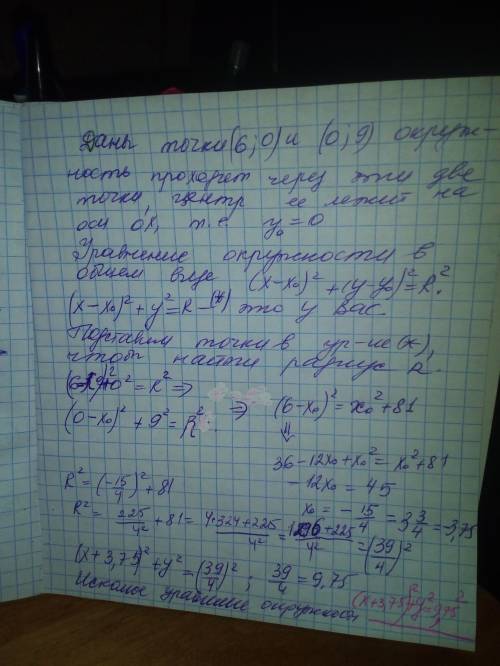 Даны точки (6; 0) и (0; 9) окруж-
ность проходет через эти две
точки, центр ее лежит на
оси OX, т.е. y₀ = 0
Уравнение окружности в
общем виде (x-x₀)² + (y-y₀)² = R².
(x-x₀)² + y² = R – (*) это у вас.
Подставим точки в ур-ие (*),
чтобы найти радиус R.
+ 0² = R² ⇒
(0-x₀)² + 9² = R² ⇒ (6-x₀)² = x₀² + 81
⇓
36 - 12x₀ + x₀² = x₀² + 81
-12x₀ = 45
R² = (-15/4)² + 81
x₀ = -15/4 = 3 3/4 = -3,75
R² = 225/4² + 81 = (4·324+225)/4² = (1296+225)/4² = (39/4)²
(x+3,75)² + y² = (39/4)² ; 39/4 = 9,75
Искомое уравнение окружности (x+3,75)²+y²=9,75²